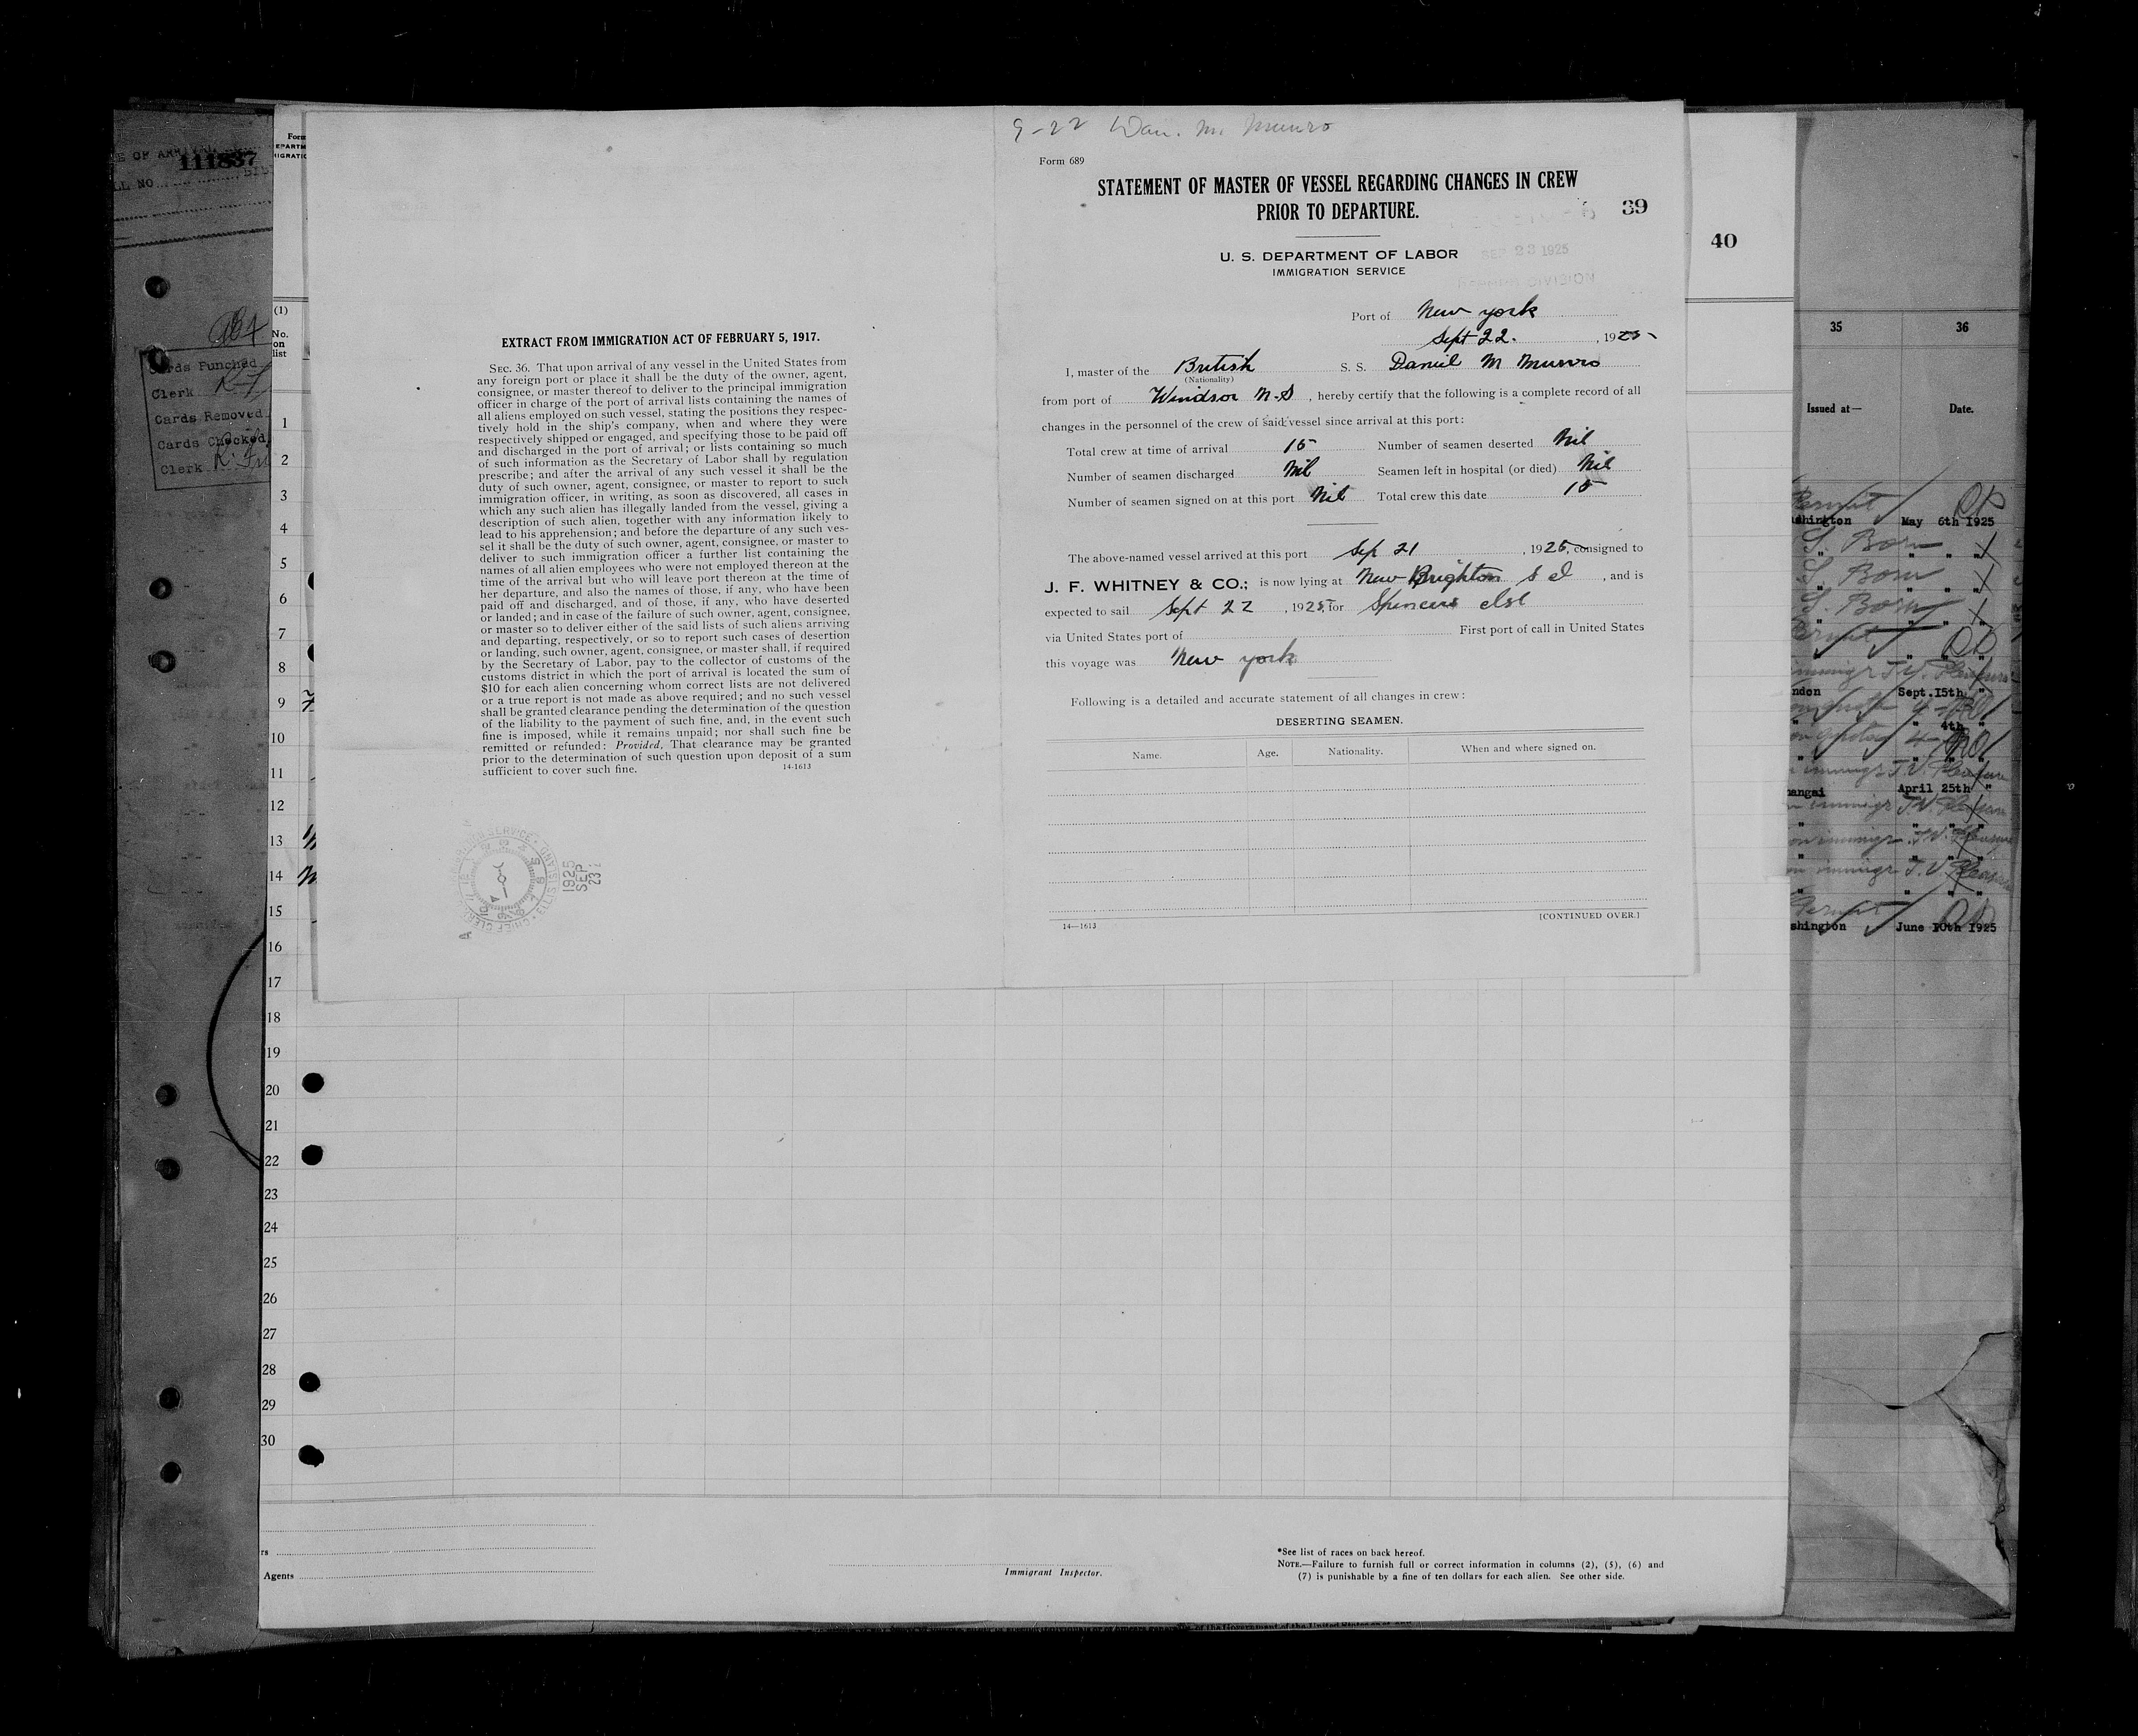 111837
Cards Punched
Clerk
Cards Removed
Cards Checked
Clerk
(1)
No.
on
list
1
2
3
4
5
6
7
8
9
10
11
12
13
14
15
16
17
18
19
20
21
22
23
24
25
26
27
28
29
30
EXTRACT FROM IMMIGRATION ACT OF FEBRUARY 5, 1917.
SEC. 36. That upon arrival of any vessel in the United States from
any foreign port or place it shall be the duty of the owner, agent,
consignee, or master thereof to deliver to the principal immigration
officer in charge of the port of arrival lists containing the names of
all aliens employed on such vessel, stating the positions they respec-
tively hold in the ship's company, when and where they were
respectively shipped or engaged, and specifying those to be paid off
and discharged in the port of arrival; or lists containing so much
of such information as the Secretary of Labor shall by regulation
prescribe; and after the arrival of any such vessel it shall be the
duty of such owner, agent, consignee, or master to report to such
immigration officer, in writing, as soon as discovered, all cases in
which any such alien has illegally landed from the vessel, giving a
description of such alien, together with any information likely to
lead to his apprehension; and before the departure of any such ves-
sel it shall be the duty of such owner, agent, consignee, or master to
deliver to such immigration officer a further list containing the
names of all alien employees who were not employed thereon at the
time of the arrival but who will leave port thereon at the time of
her departure, and also the names of those, if any, who have been
paid off and discharged, and of those, if any, who have deserted
or landed; and in case of the failure of such owner, agent, consignee,
or master so to deliver either of the said lists of such aliens arriving
and departing, respectively, or so to report such cases of desertion
or landing, such owner, agent, consignee, or master shall, if required
by the Secretary of Labor, pay to the collector of customs of the
customs district in which the port of arrival is located the sum of
$10 for each alien concerning whom correct lists are not delivered
or a true report is not made as above required; and no such vessel
shall be granted clearance pending the determination of the question
of the liability to the payment of such fine, and, in the event such
fine is imposed, while it remains unpaid; nor shall such fine be
remitted or refunded: Provided, That clearance may be granted
prior to the determination of such question upon deposit of a sum
sufficient to cover such fine. 14-1613
1925
SEP
23
9-22 Dan. M. Munro
Form 689
STATEMENT OF MASTER OF VESSEL REGARDING CHANGES IN CREW
PRIOR TO DEPARTURE.
39
U. S. DEPARTMENT OF LABOR
IMMIGRATION SERVICE
SEP 23 1925
DIVISION
Port of New york
Sept 22. , 1925
I, master of the British S. S. Daniel M Munro
(Nationality)
from port of Windsor N.S , hereby certify that the following is a complete record of all
changes in the personnel of the crew of said vessel since arrival at this port:
Total crew at time of arrival 15 Number of seamen deserted Nil
Number of seamen discharged Nil Seamen left in hospital (or died) Nil
Number of seamen signed on at this port Nil Total crew this date 15
The above-named vessel arrived at this port Sep 21 , 1925, consigned to
J. F. WHITNEY & CO.; is now lying at New Brighton S I , and is
expected to sail Sept 22 , 1925, for Spencers Isl
via United States port of First port of call in United States
this voyage was New york
Following is a detailed and accurate statement of all changes in crew:
DESERTING SEAMEN.
Name. Age. Nationality. When and where signed on.
[CONTINUED OVER.]
14—1613
40
35 36
Issued at— Date.
May 6th 1925
Sept. 15th "
" 4th "
April 25th "
June 10th 1925
Agents
Immigrant Inspector.
*See list of races on back hereof.
NOTE.—Failure to furnish full or correct information in columns (2), (5), (6) and
(7) is punishable by a fine of ten dollars for each alien. See other side.